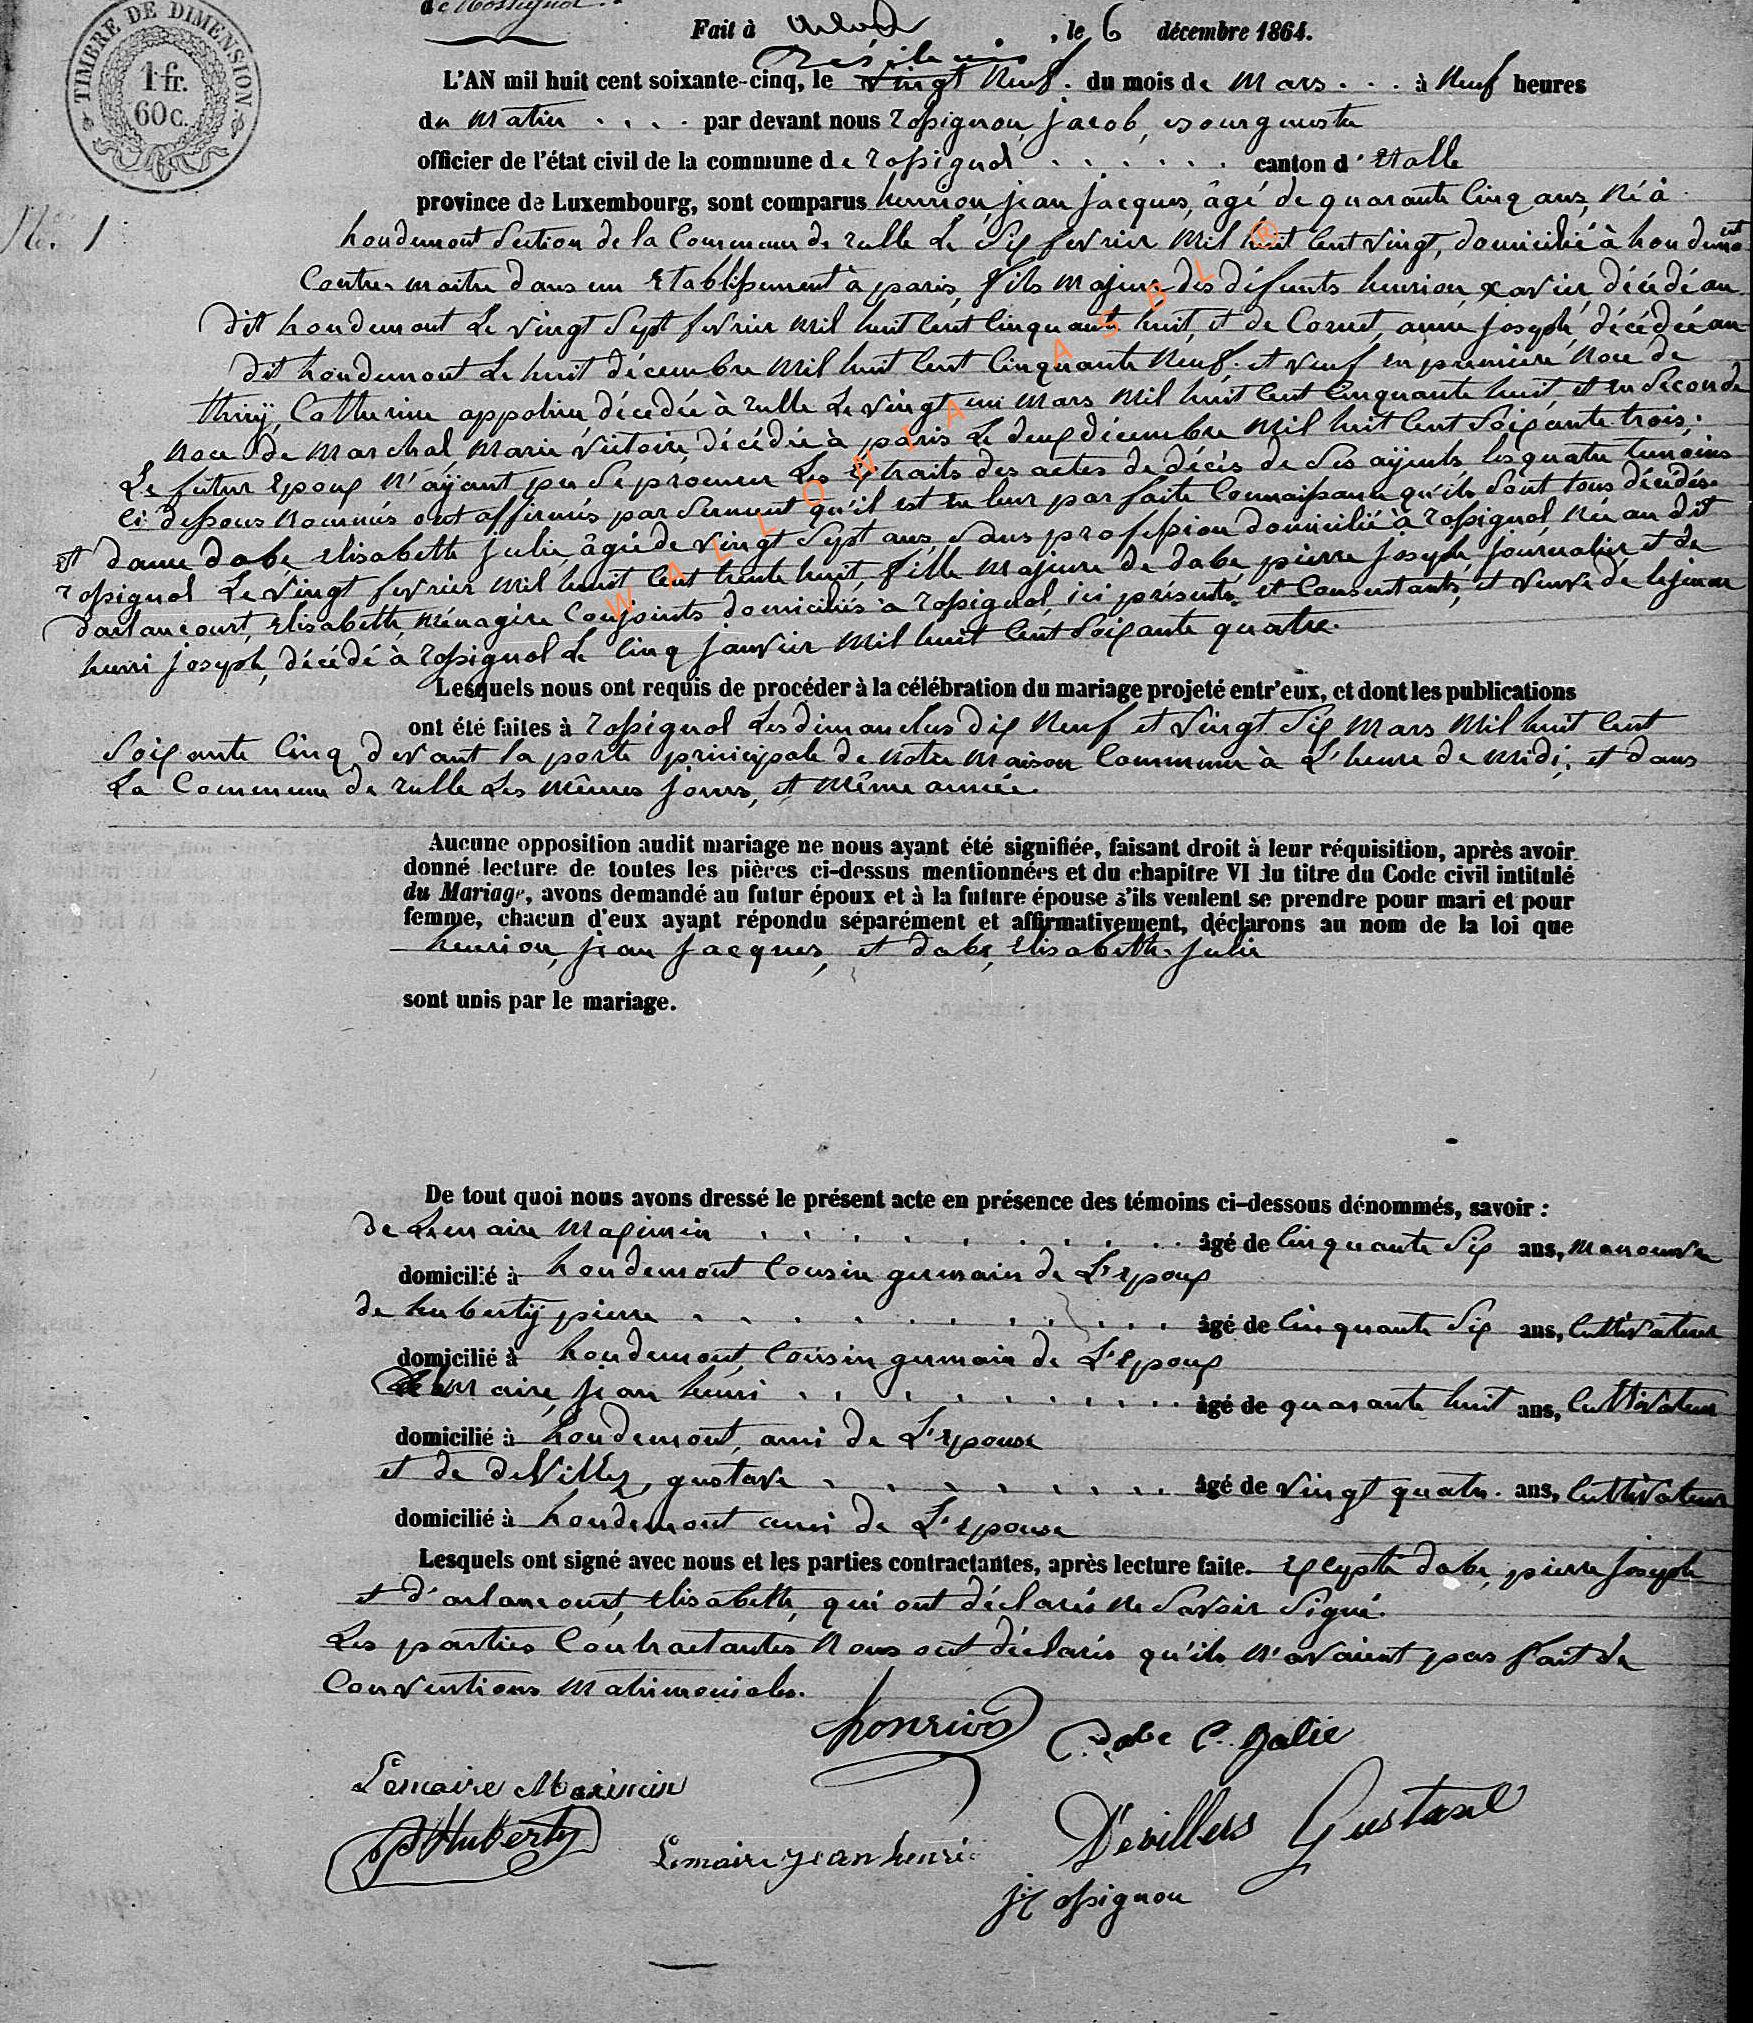 de Rossignol.
TIMBRE DE DIMENSION.
1 fr.
60 c.
Fait à Arlon, le 6 décembre 1864.
L'AN mil huit cent soixante-cinq, le vingt neuf. du mois de mars . . . à neuf heures
du matin . . . . par devant nous rossignon, jacob, bourgmestre
officier de l'état civil de la commune de rossignol . . . . . . canton d'Etalle
province de Luxembourg, sont comparus henrion, jean jacques, âgé de quarante cinq ans, né à
No. 1
houdemont section de la commune de rulle le six fevrier mil huit cent vingt, domicilié à houdemont
contre-maitre dans un etablissement à paris, fils majeur des défunts henrion, xavier, décédé au
dit houdemont le vingt sept fevrier mil huit cent cinquante huit, et de Cornet, anne joseph, décédée au
dit houdemont le huit décembre mil huit cent cinquante neuf. et veuf en première noce de
thirÿ, Catherine appoline, décédée à rulle le vingt un mars mil huit cent cinquante huit, et en seconde
noce de marchal marie victoire, décédée à paris le deux décembre mil huit cent soixante trois;
Le futur epoux n'aÿant pu se procurer les extraits des actes de décès de ses aÿeuls les quatre temoins
ci dessous nommés ont affirmés par serment qu'il est en leur parfaite connaissance qu'ils sont tous décédés.
et dame dabe elisabeth julie, âgée de vingt sept ans, sans profession domicilié à rossignol, née au dit
rossignol le vingt fevrier mil huit cent trente huit, fille majeure de dabe, pierre joseph, journalier et de
darlancourt, elisabeth, ménagère conjoints domiciliés à rossignol, ici présents, et consentants, et veuve de lejeune
henri joseph, décédé à rossignol le cinq janvier mil huit cent soixante quatre.
Lesquels nous ont requis de procéder à la célébration du mariage projeté entr'eux, et dont les publications
ont été faites à rossignol les dimanches dix neuf et vingt six mars mil huit cent
soixante cinq devant la porte principale de notre maison commune à l'heure de midi; et dans
la commune de rulle les mêmes jours, et même année.
Aucune opposition audit mariage ne nous ayant été signifiée, faisant droit à leur réquisition, après avoir
donné lecture de toutes les pièces ci-dessus mentionnées et du chapitre VI du titre du Code civil intitulé
du Mariage, avons demandé au futur époux et à la future épouse s'ils veulent se prendre pour mari et pour
femme, chacun d'eux ayant répondu séparément et affirmativement, déclarons au nom de la loi que
henrion, jean jacques, et dabe, elisabeth julie
sont unis par le mariage.
De tout quoi nous avons dressé le présent acte en présence des témoins ci-dessous dénommés, savoir :
de Lemaire maximin . . . . . . . . . âgé de cinquante six ans, manoeuvre
domicilié à houdemont cousin germain de l'epoux
de hubertÿ pierre . . . . . . . . . . âgé de cinquante six ans, cultivateur
domicilié à houdemont, cousin germain de l'epoux
de lemaire, jean henri . . . . . . . . âgé de quarante huit ans, cultivateur
domicilié à houdemont, ami de l'epouse
et de devillez, gustave . . . . . . . . âgé de vingt quatre. ans, cultivateur
domicilié à houdemont ami de l'epouse
Lesquels ont signé avec nous et les parties contractantes, après lecture faite. excepté dabe, pierre joseph
et d'arlancourt, elisabeth, qui ont déclarés ne savoir signé.
Les parties contractantes nous ont déclarés qu'ils n'avaient pas fait de
conventions matrimoniales.
henrion
Dabe E. Julie
Lemaire Maximin
P Huberty
Lemaire jean henri
Devillers Gustave
J rossignon
WALLONIA ASBL ®